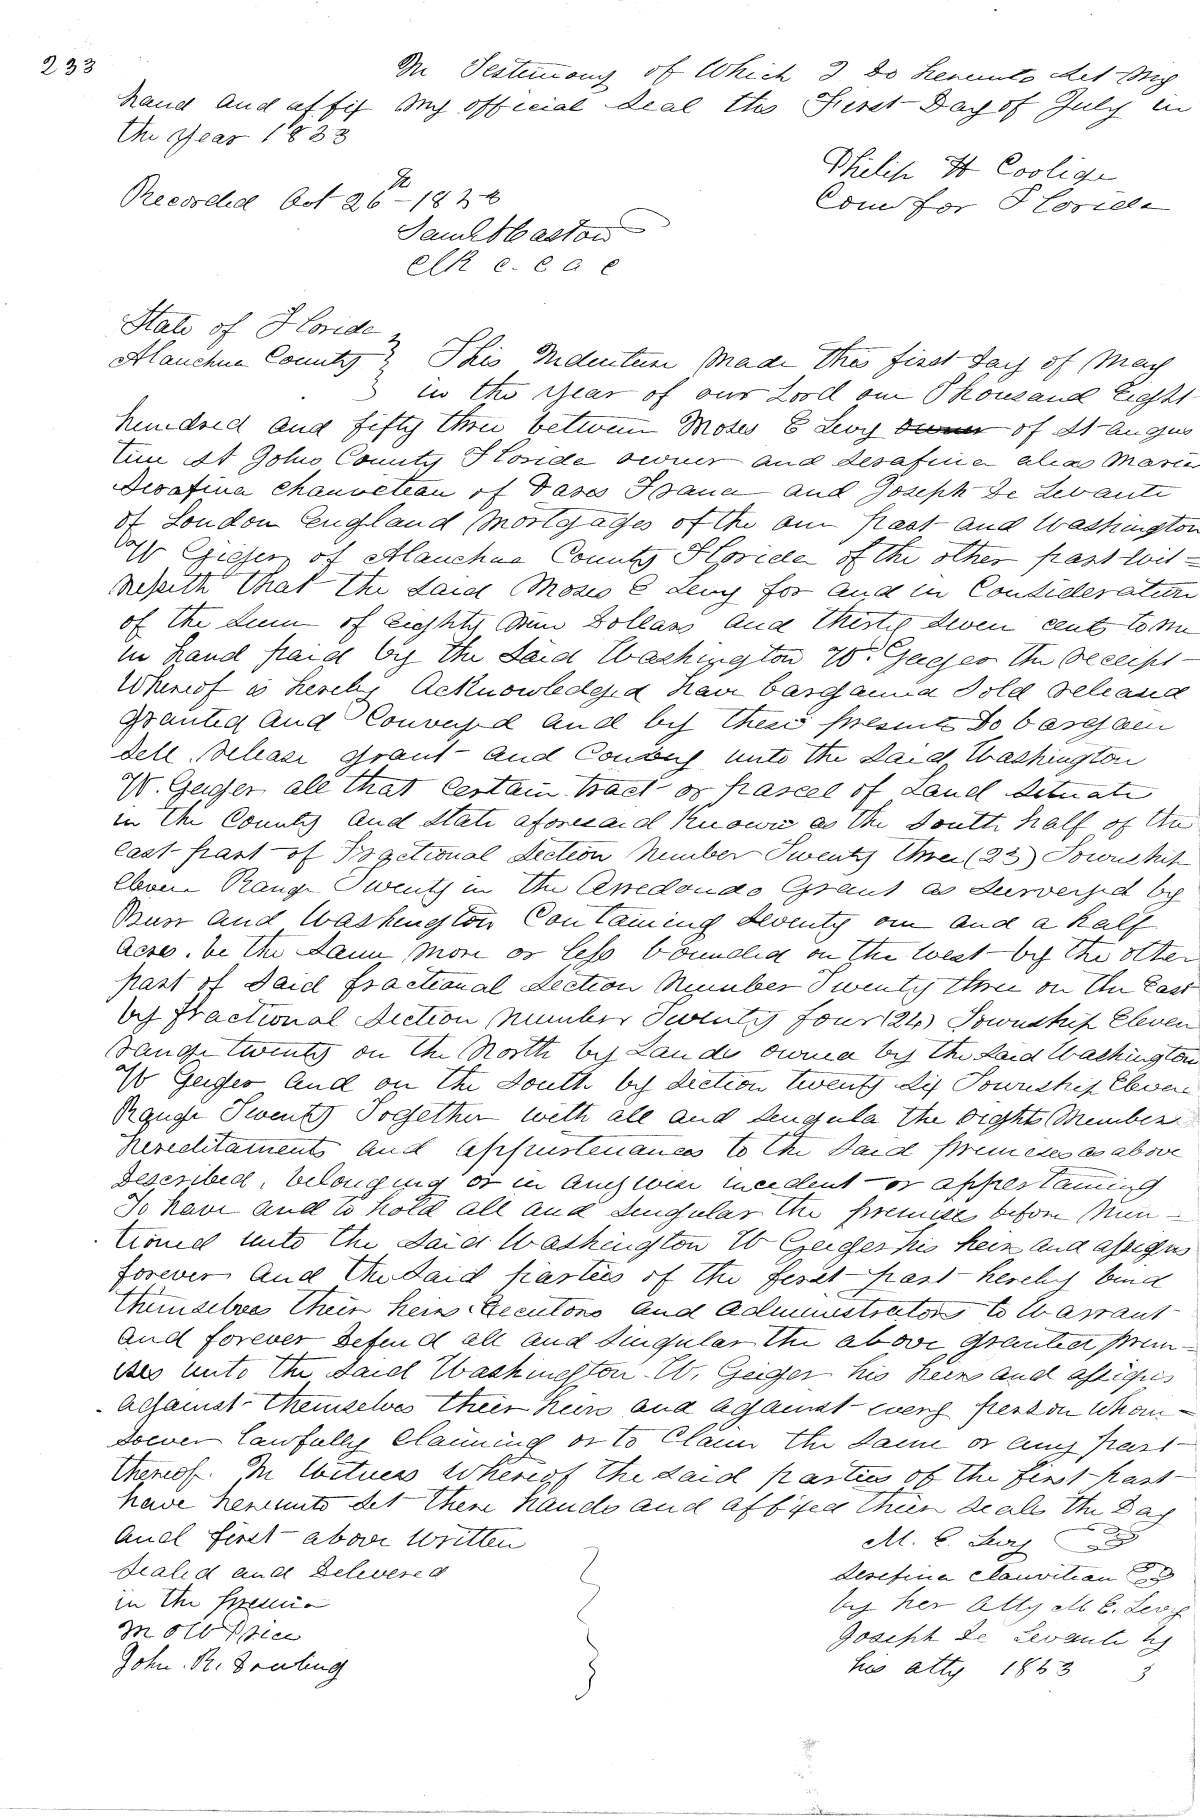 233
In Testimony of Which I do hereunto set my
hand and affix my official seal this First Day of July in
the year 1833
Philip H Coolige
Com for Florida
Recorded Oct 26th - 1838
Saml
Clk c. c a c
State of Florida
Alauchua County This Indenture made this first day of May
in the year of our Lord one Thousand Eight
hundred and fifty three between Moses E Levy owner of St Augus
tine St Johns County Florida owner and Serafina alias Maria
Serafina Chauveteau of Pares France and Joseph De Levante
of London England Mortgages of the one part and Washington
W Gieger of Alauchua County Florida of the other part Wit=
nesseth that the said Moses E Levy for and in Consideration
of the Sum of Eighty Nine Dollars and thirty seven cents to me
in hand paid by the Said Washington W. Geiger the receipt
Whereof is hereby Acknowledged have bargained Sold released
granted and Conveyed and by these presents Do bargain
Sell release grant and Convey unto the Said Washington
W. Geiger all that certain tract or parcel of Land Situate
in the County and State aforesaid Known as the South half of the
East part of Fractional Section Number Twenty three (23) Township
Eleven Range Twenty in the Arredondo Grant as Surveyed by
Burr and Washington Containing Seventy one and a half
acres. be the Same more or less bounded on the West by the other
part of Said fractional Section Number Twenty three on the East
by fractional Section Number Twenty four (24) Township Eleven
range twenty on the North by Lands owned by the Said Washington
W Geiger and on the South by Section twenty Six Township Eleven
Range Twenty Together with all and Singula the rights Members
hereditaments and appurtenances to the Said premises as above
described, belonging or in anywise incedent or appertaining
To have and to hold all and Singular the premises before Men=
tioned unto the Said Washington W Geiger his heirs and assigns
forever and the Said parties of the first part hereby bind
themselves their heirs Executors and administrators to Warrant
and forever Defend all and Singular the above granted prem=
ises unto the Said Washington W. Geiger his heirs and assigns
against themselves their heirs and against every person Whom=
soever lawfully Claiming or to Claim the Same or any part
thereof. In Witness Whereof the Said parties of the first part
have hereunto Set there hands and affixed their Seals the Day
and first above Written
Sealed and Delivered
in the presence
M
John R.
M. E. Levy
Serefina
by her atty M E. Levy
Joseph De Levante by
his atty 1853